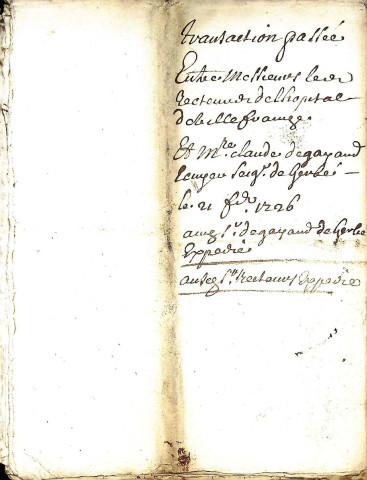 transaction passée
Entre Messieurs les
Recteurs de Lhopital
de villefranche
Et Mre. claude degayand
Ecuyer seigr. de Gerbes
le 21 1726
sr. degayand de Gerbe
Expediée
srs. Recteurs Expediée